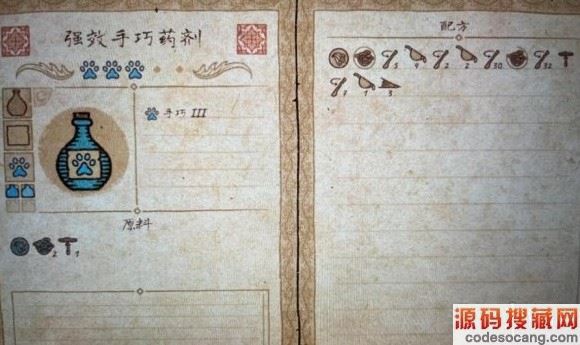 强效手巧药剂
手巧 III
原料
2 1
配方
5 9 2 2 30 32
1 1 3
源码搜藏网
codesocang.com